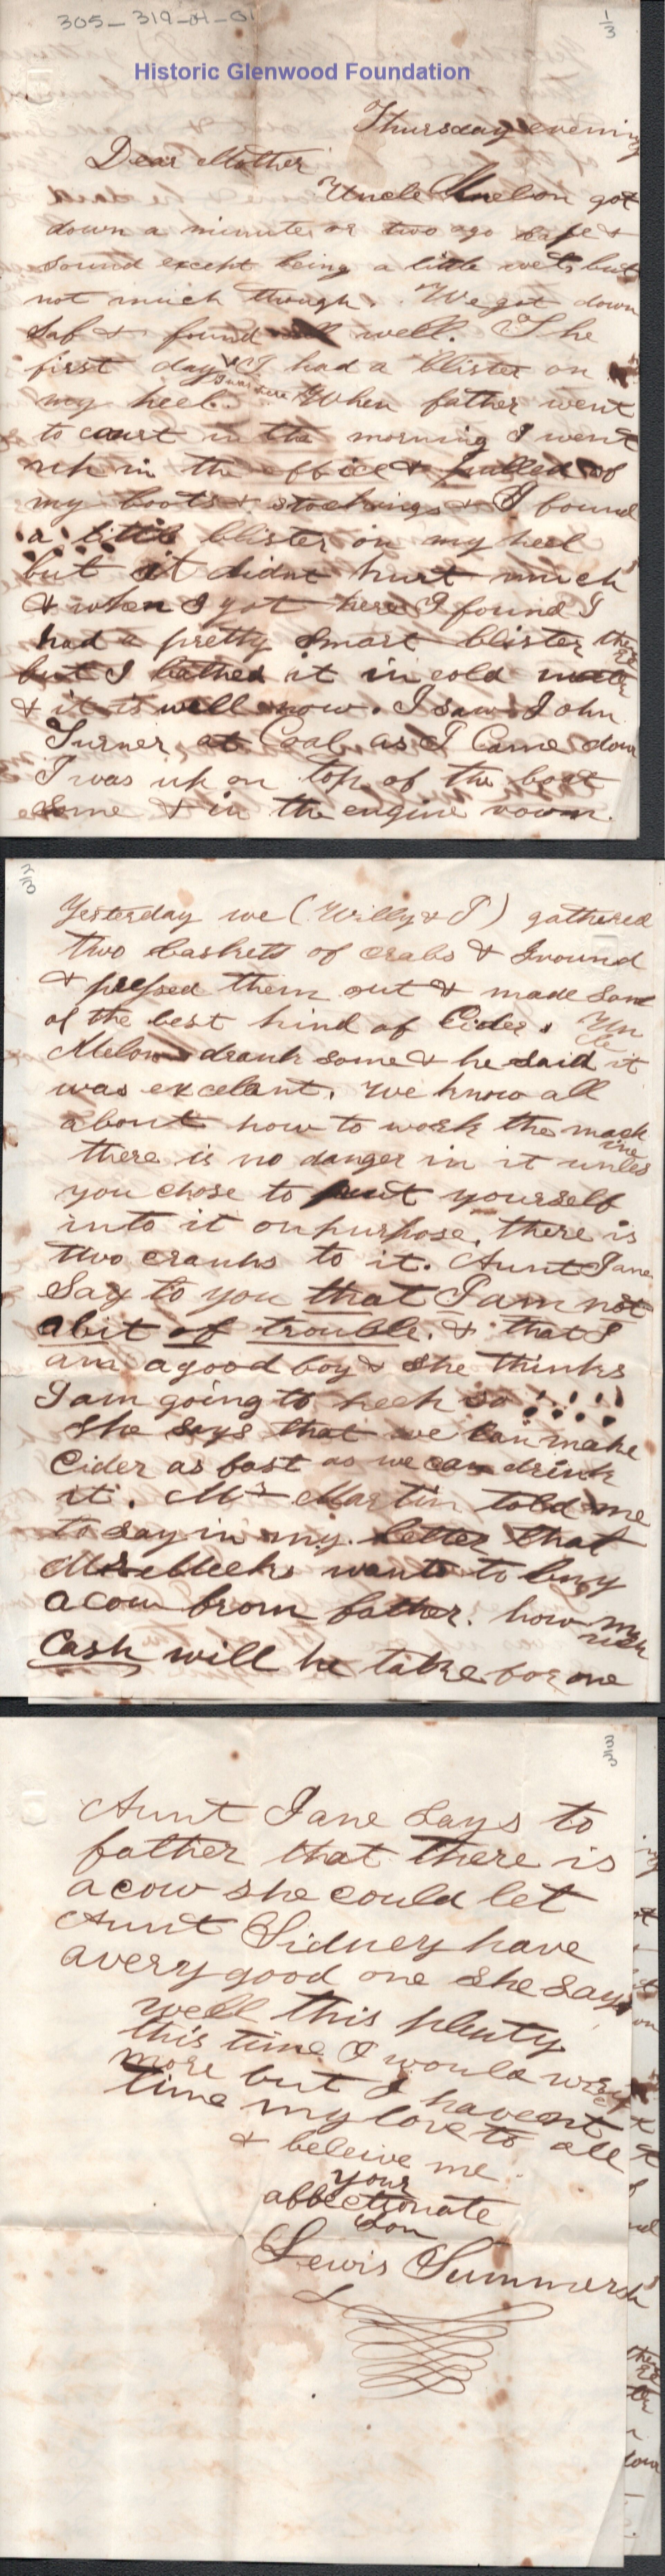 305-319-01-01
1/3
Historic Glenwood Foundation
Thursday evening
Dear Mother
Uncle got
down a minute or two ago safe &
sound except being a little wet, but
not much though. We got down
saf & found all well. The
first day I had a blister on
I was here
my heel. When father went
to court in the morning I went
up in the office & pulled of
my boots & stockings & I found
a little blister on my heel
but it didnt hurt much
& when I got here I found I
had a pretty smart blister there
but I bathed it in cold water
& it is well now. I saw John
Turner at Coal as I Came down
I was up on top of the boat
some & in the engine room.
2/3
Yesterday we (Willy & I) gathered
two baskets of crabs & ground
& pressed them out & made some
of the best kind of Cider. Un
cle
drank some & he said it
was excelent. We know all
about how to work the mach
ine
there is no danger in it unles
you chose to put yourself
into it on purpose. there is
two cranks to it. Aunt Jane
Say to you that I am not
a bit of trouble. & that I
am a good boy & she thinks
I am going to keep so !!!!
She says that we can make
Cider as fast as we can drink
it. Mr Martin told me
to say in my letter that
wants to buy
a cow from father. how mu
uch
Cash will he take for one
3/3
Aunt Jane says to
father that there is
a cow she could let
Aunt Sidney have
a very good one she says
well this plenty
this time I would write
more but I havent
time my love to all
& beleive me
your
affectionate
Son
Lewis Summers